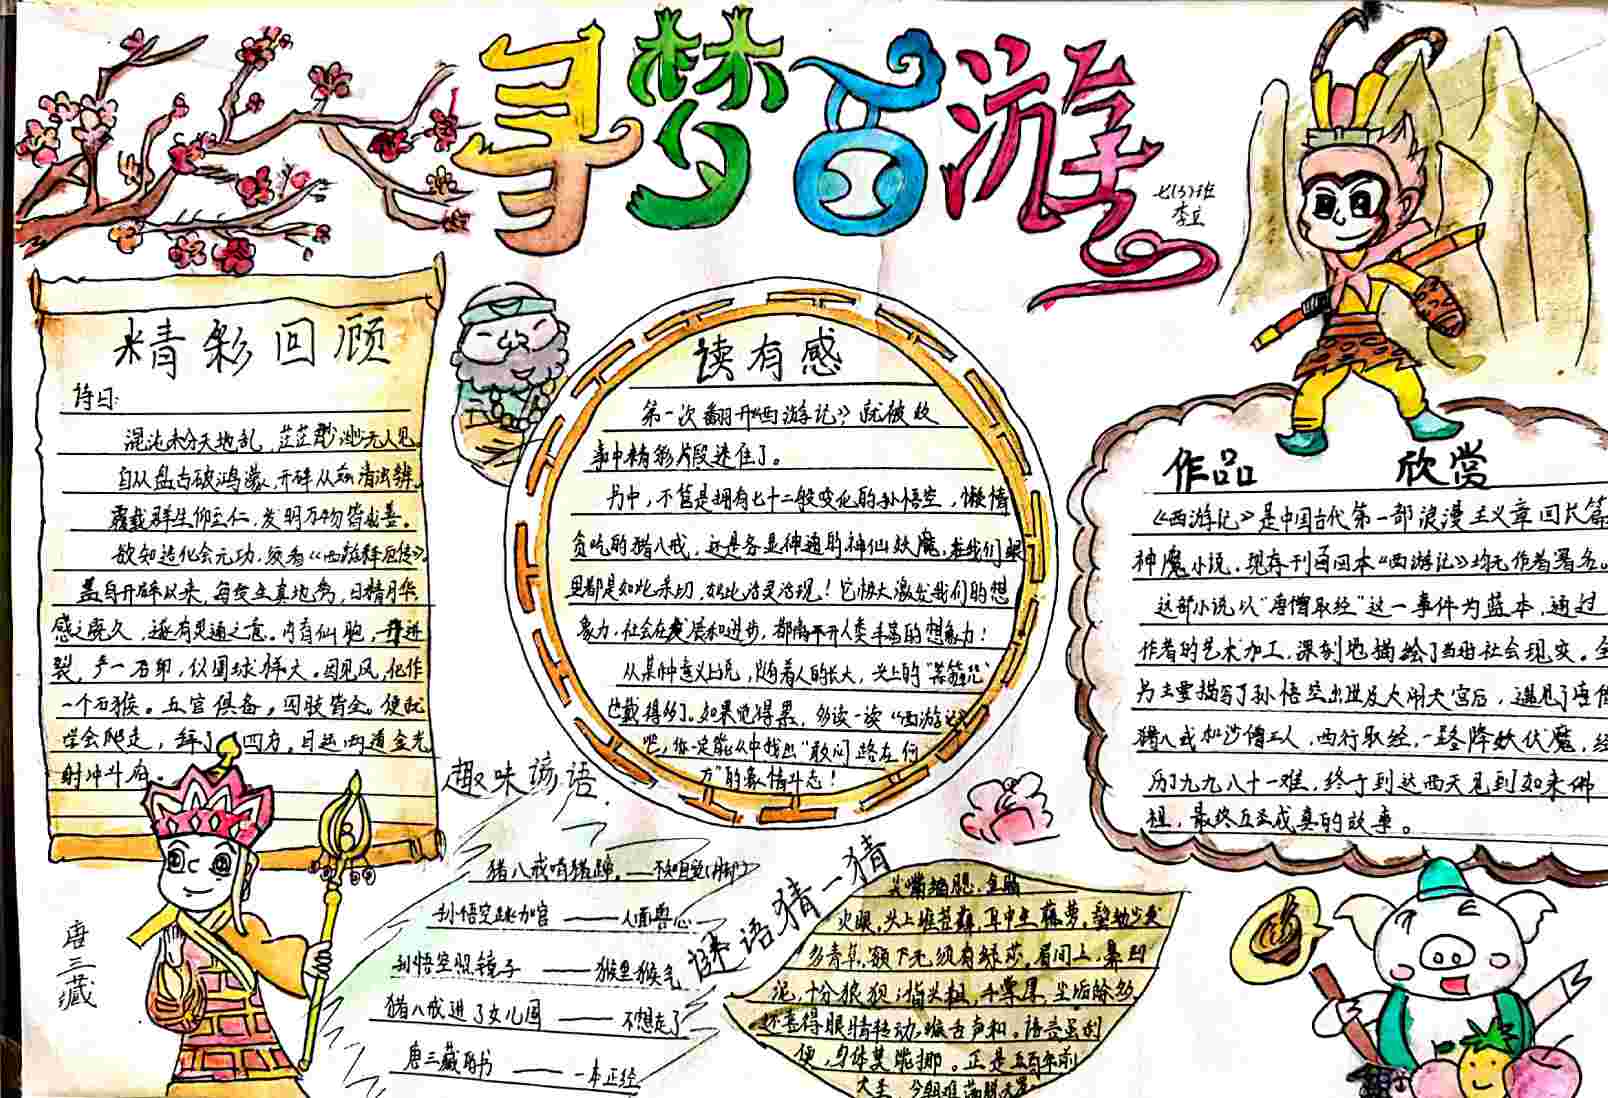 寻梦西游
七(3)班
李立
精彩回顾
诗曰:
混沌未分天地乱,茫茫渺渺无人见。
自从盘古破鸿蒙,开辟从兹清浊辨。
覆载群生仰至仁,发明万物皆成善。
欲知造化会元功,须看《西游释厄传》。
盖自开辟以来,每受天真地秀,日精月华,
感之既久,遂有灵通之意。内育仙胞,一日迸
裂,产一石卵,似圆球样大。因见风,化作
一个石猴。五官俱备,四肢皆全。便就
学会爬走,拜了四方。目运两道金光
射冲斗府。
唐三藏
读有感
第一次翻开《西游记》就被故
事中精彩片段迷住了。
书中,不管是拥有七十二般变化的孙悟空,懒惰
贪吃的猪八戒,还是各显神通的神仙妖魔,在我们眼
里都是如此亲切,如此活灵活现!它极大激发我们的想
象力,社会在发展和进步,都离不开人类丰富的想象力!
从某种意义上说,随着人的长大,头上的“紧箍咒”
也戴得多了。如果觉得累,多读一读《西游记》
吧,你一定能从中找出“敢问路在何
方”的豪情斗志!
作品 欣赏
《西游记》是中国古代第一部浪漫主义章回长篇
神魔小说,现存刊百回本《西游记》均无作者署名。
这部小说以“唐僧取经”这一事件为蓝本,通过
作者的艺术加工,深刻地描绘了当时社会现实。全
书主要描写了孙悟空出世及大闹天宫后,遇见了唐僧
猪八戒和沙僧三人,西行取经,一路降妖伏魔,经
历九九八十一难,终于到达西天见到如来佛
祖,最终五圣成真的故事。
趣味谚语
猪八戒啃猪蹄 —— 不知自觉(脚)
孙悟空 加官 —— 人面兽心
孙悟空照镜子 —— 猴里猴气
猪八戒进了女儿国 —— 不想走了
唐三藏 书 —— 一本正经
谜语猜一猜
尖嘴缩腮,金睛
火眼,头上堆苔藓,耳中生薜萝。鬓边少发
多青草,颔下无须有绿莎。眉间土,鼻凹
泥,十分狼狈;指头粗,手掌厚,尘垢馀多。
还喜得眼睛转动,喉舌声和。语言虽利
便,身体莫能挪。正是五百年前
大圣,今朝难满脱天罗